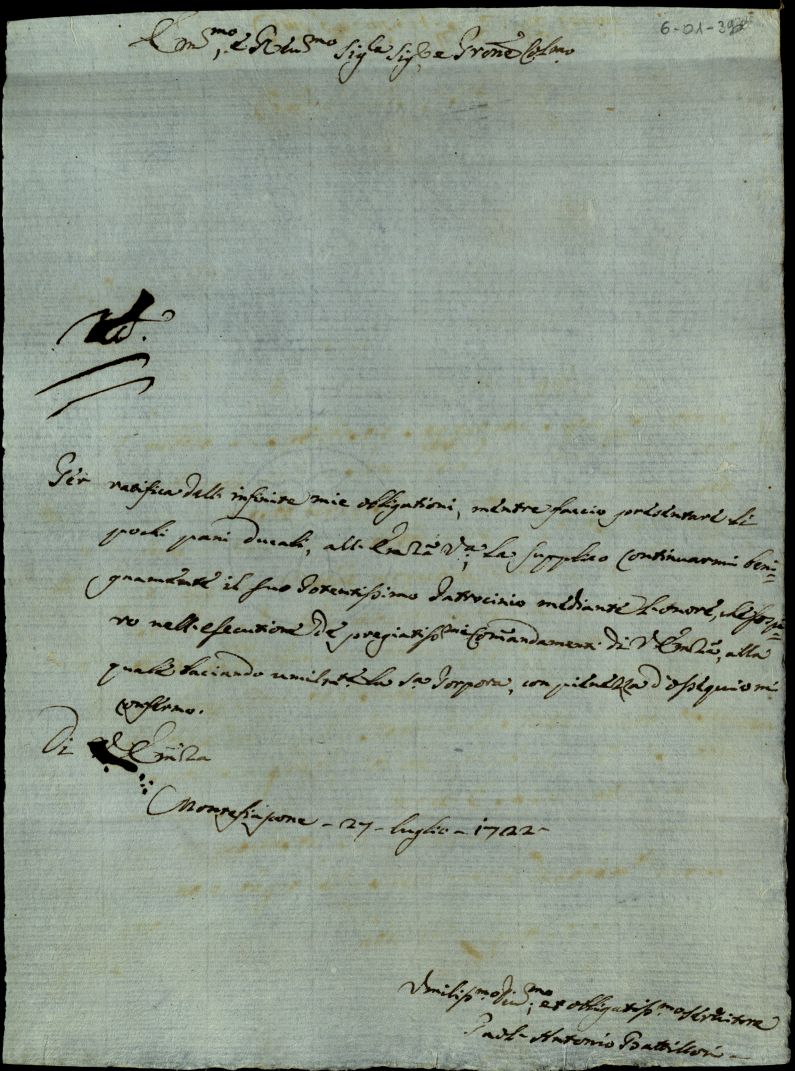 6-01-39
Em.mo, e Reu.mo Sig.re Sig.re e Prone Col.mo
Per ratifica delle infinite mie obbligationi, mentre faccio presentare li
pochi pani ducali, all'Emza Va, La supplico continuarmi beni=
gnamente il suo potentissimo Patrocinio mediante l'onore, che sospi=
ro nell'esecutione de pregiatiss.mi Comandamenti di V Emza, alla
quale baciando umilmte la Sa Porpora, con pienezza d'ossequio mi
confermo.
Di V Emza
Montefiascone - 27 - luglio - 1722 -
Umiliss.mo Diu.mo, et obbligatiss.mo Seruitore
Antonio